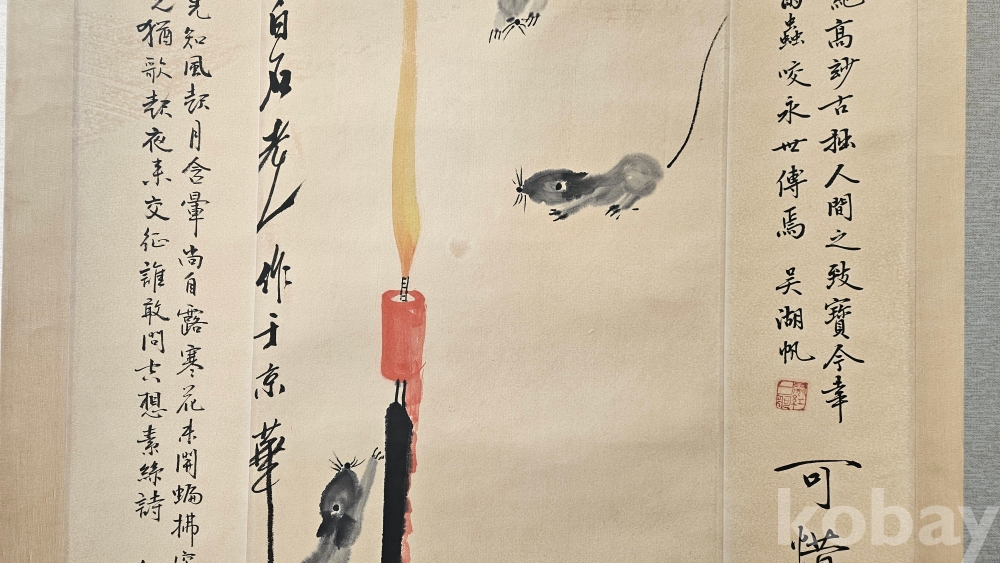 高玅古拙人間之致寶今幸
蟲咬永世傳焉 吳湖帆
可惜
白石老人作于京華
知風起月含暈尚自露寒花未開蝙拂
猶歌起夜来交征誰敢問去想素絲詩
kobay